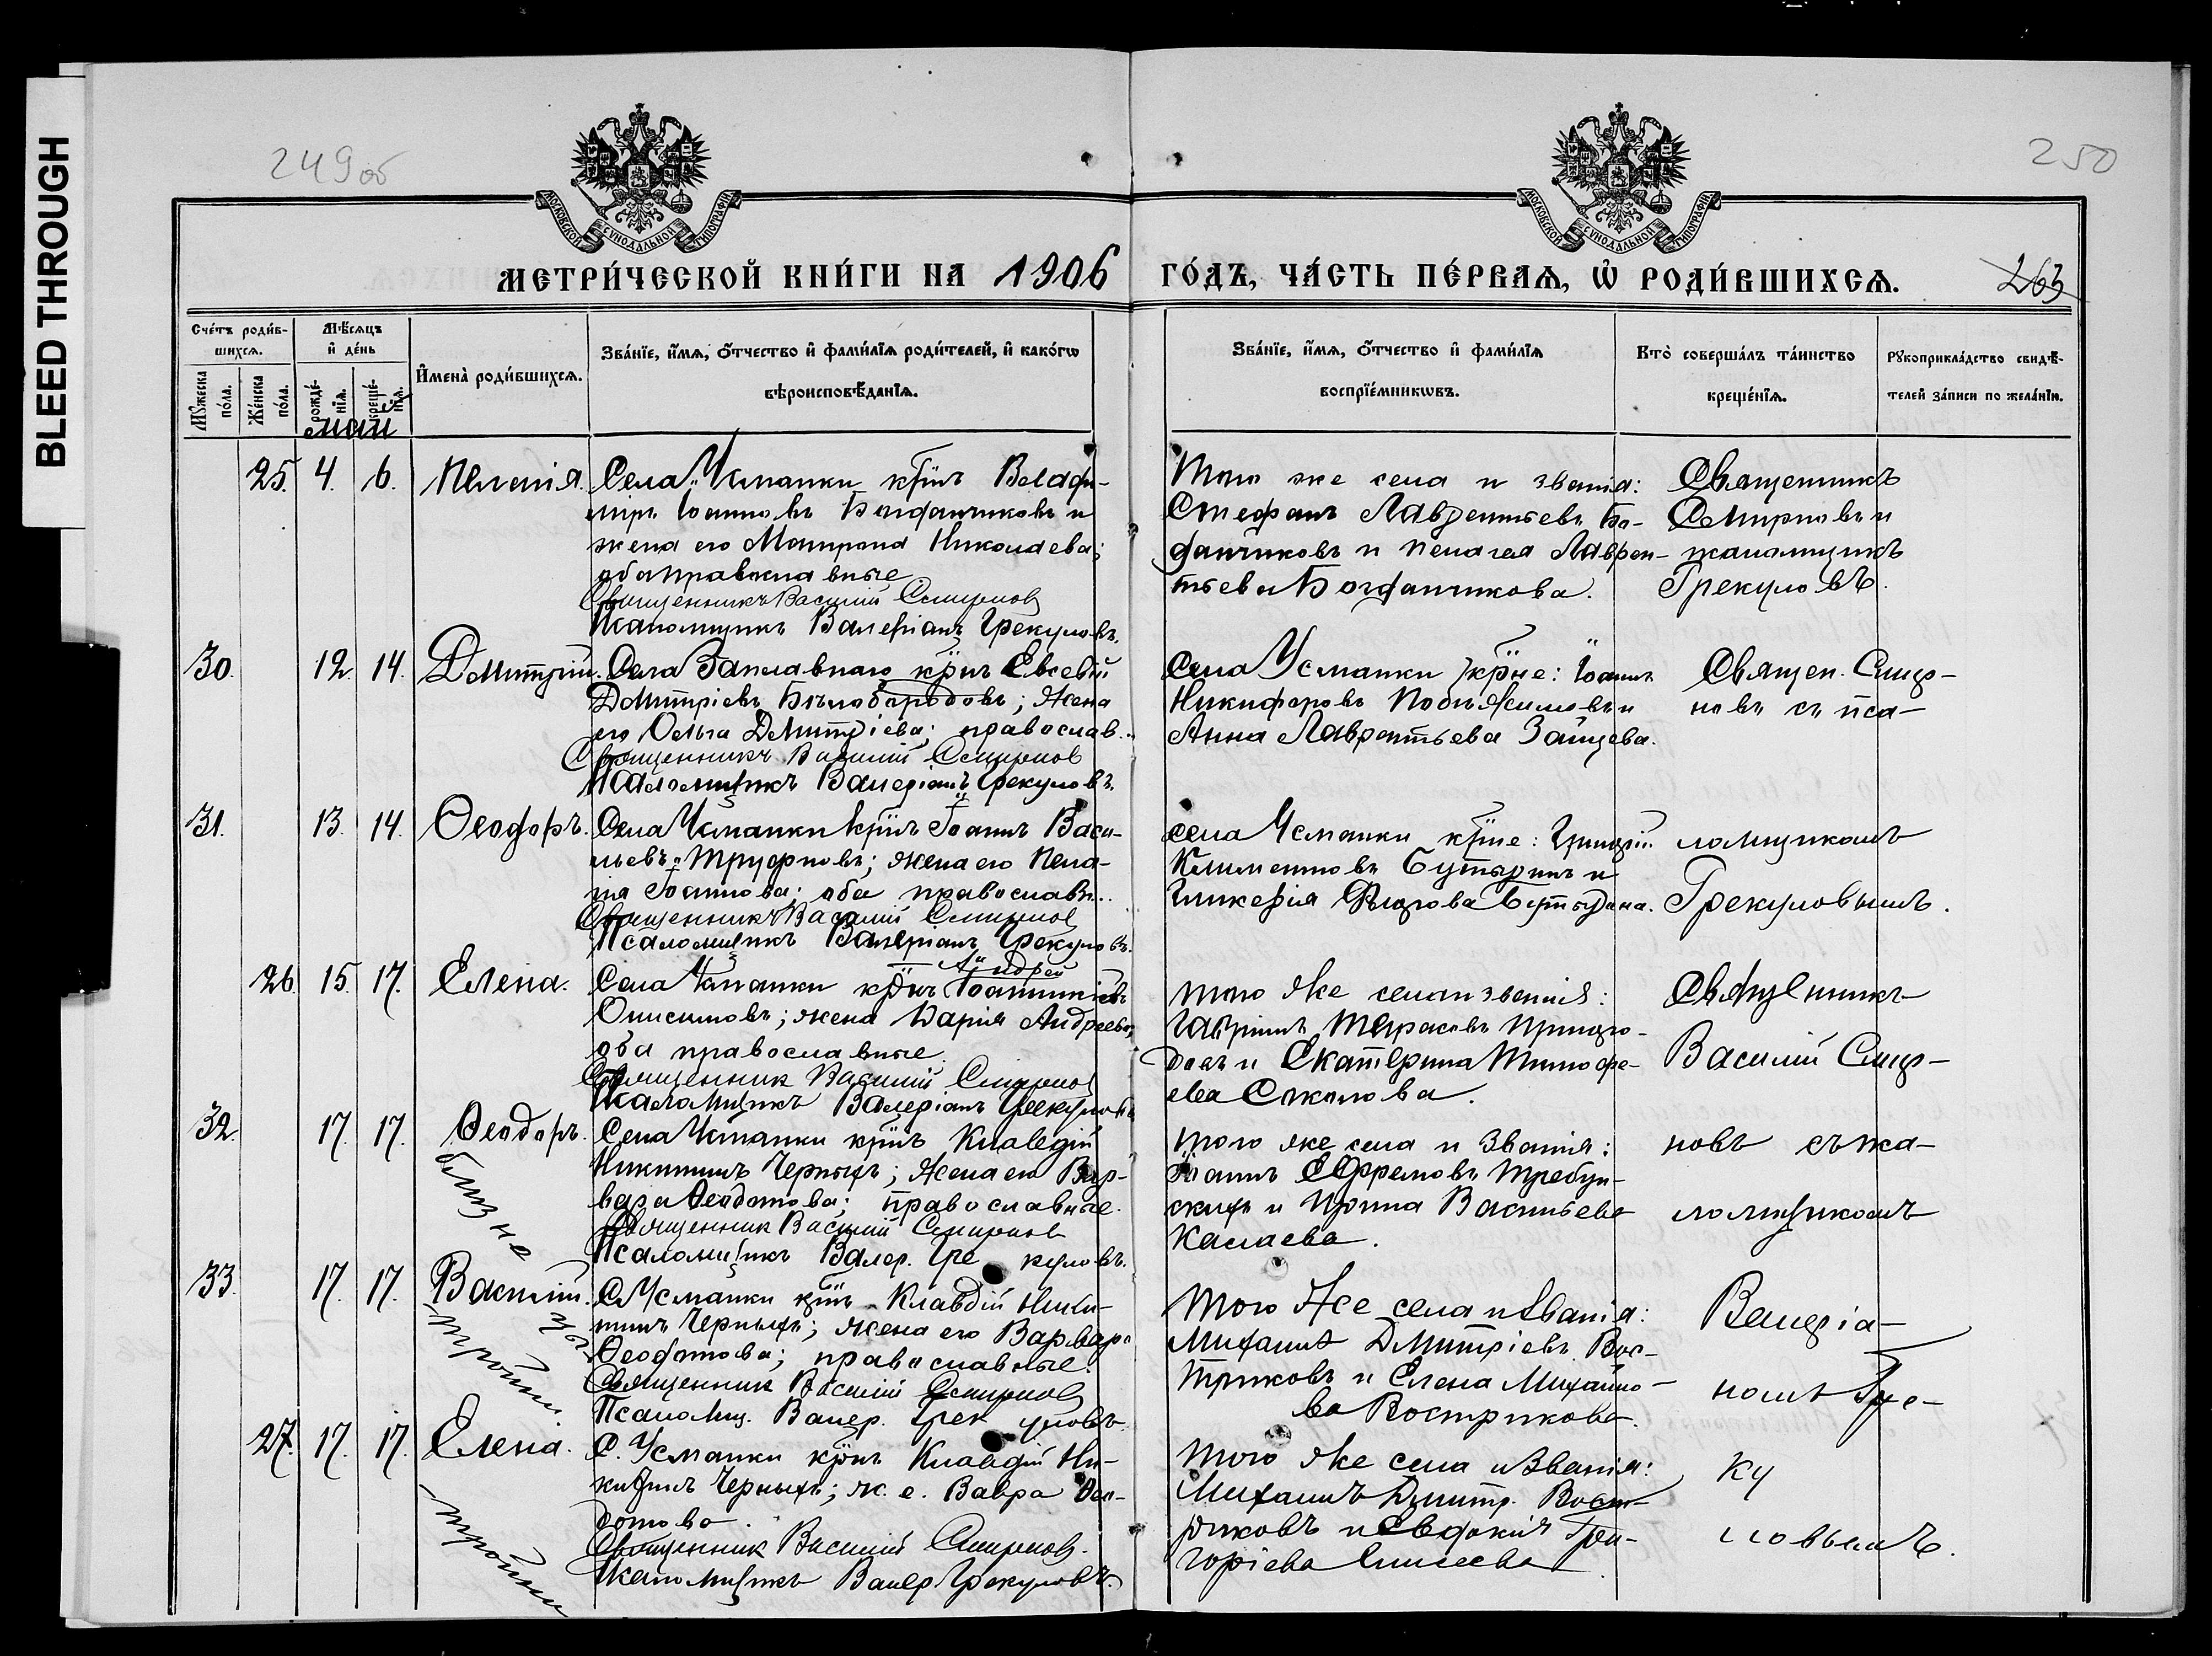 BLEED THROUGH
249об
250
МОСКОВСКОЙ СѴНОДАЛЬНОЙ ТИПОГРАФІИ
МОСКОВСКОЙ СѴНОДАЛЬНОЙ ТИПОГРАФІИ
МЕТРИ́ЧЕСКОЙ КНИ́ГИ НА 1906 ГО́ДЪ, ЧА́СТЬ ПЕ́РВАѦ, Ѡ҆ РОДИ́ВШИХСѦ.
263
Сче́тъ роди́в-
шихсѧ.
Мꙋ́жеска по́ла.
Же́нска по́ла.
Мѣ́сѧцъ
и҆ де́нь
рожде́-
нїѧ.
креще́-
нїѧ.
май
И҆мена̀ роди́вшихсѧ.
Зва́нїе, и҆́мѧ, о҆́тчество и҆ фами́лїѧ роди́телей, и҆ како́гѡ
вѣроисповѣ́данїѧ.
Зва́нїе, и҆́мѧ, о҆́тчество и҆ фами́лїѧ
воспрїе́мникѡвъ.
Кто̀ соверша́лъ та́инство
креще́нїѧ.
Рꙋкоприкла́дство свидѣ́-
телей за́писи по жела́нїю.
25. 4. 6. Пелагія.
Села Усманки крїнъ Владі-
міръ Іоанновъ Богданчиковъ и
жена его Матрона Николаева;
оба православные
Священникъ Василій Смирнов
Псаломщикъ Валеріанъ Грекуловъ.
Того же села и званія:
Стефанъ Лаврентьевъ Бог-
данчиковъ и Пелагея Лаврен-
тьева Богданчикова.
Священникъ
Смирновъ и
псаломщикъ
Грекуловъ.
30. 12. 14. Димитрій.
Села Заплавнаго крїнъ Евсевій
Димитріевъ Бѣлобородовъ; жена
его Ольга Димитріева; православ.
Священникъ Василій Смирнов
Псаломщикъ Валеріанъ Грекуловъ.
Села Усманки крїне: Іоаннъ
Никифоровъ и
Анна Лаврентьева Зайцева.
Священ. Смир-
новъ съ пса-
31. 13. 14. Ѳеодоръ.
Села Усманки крїнъ Іоаннъ Васи-
льевъ Труфновъ; жена его Пела-
гія Іоаннова; оба православн.
Священникъ Василій Смирнов
Псаломщикъ Валеріанъ Грекуловъ.
Села Усманки крїне: Григорій
Климентовъ Бутыринъ и
Гликерія Бутырина.
ломщикомъ
Грекуловымъ.
26. 15. 17. Елена.
Андрей
Села Усманки крїнъ Іоанникіевъ
Онисимовъ; жена Дарія Андреева,
оба православные.
Священник Василій Смирнов
Псаломщикъ Валеріанъ Грекуловъ
Того же села и званія:
Гавріилъ Тарасовъ
и Екатерина Тимофе-
ева Соколова.
Священникъ
Василій Смир-
32. 17. 17. Ѳеодоръ.
близнецы
Села Усманки крїнъ Клавдій
Никитинъ Черныхъ; жена его Вар-
вара Ѳеодотова; православные.
Священник Василій Смирнов
Псаломщикъ Валер. Грекуловъ.
Того же села и званія:
Іоаннъ Ефремовъ Требун-
скихъ и Ирина Васильева
Калаева.
новъ съ пса-
ломщикомъ
33. 17. 17. Василій.
-тройни.
С. Усманки крїнъ Клавдій Ники-
тинъ Черныхъ; жена его Варвара
Ѳеодотова; православные.
Священник Василій Смирнов
Псаломщ. Валер. Грекуловъ.
Того же села и званія:
Михаилъ Димитріевъ Вос-
триковъ и Елена Михайло-
ва Вострикова.
Валеріа-
номъ Гре-
27. 17. 17. Елена.
-тройни
С. Усманки крїнъ Клавдій Ни-
китинъ Черныхъ; ж. е. Вавра Ѳео-
дотова.
Священник Василій Смирнов.
Псаломщикъ Валер. Грекуловъ.
Того же села и званія:
Михаилъ Димитр. Вост-
риковъ и Евдокія Гри-
горіева Елисеева
ку
ловымъ.